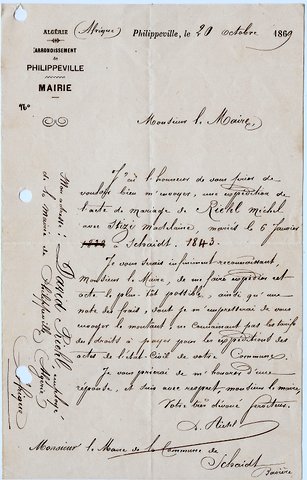 ALGÉRIE (Afrique)
ARRONDISSEMENT
de
PHILIPPEVILLE
MAIRIE
N°
Philippeville, le 20 Octobre 1869
Monsieur le Maire,
J'ai l'honneur de vous prier de
vouloir bien m'envoyer, une expédition de
l'acte de mariage de Riehl Michel
avec Madelaine, mariés le 6 Janvier
Schaidt. 1843.
Je vous serais infiniment reconnaissant,
Monsieur le Maire, de me faire expédier cet
acte le plus tôt possible, ainsi qu'une
note des frais, dont je m'empresserai de vous
envoyer le montant, ne connaissant pas les tarifs
des droits à payer pour les expéditions des
actes de l'état-Civil de votre Commune.
Je vous prierai de m'honorer d'une
réponse, et suis avec respect, monsieur le maire,
Votre bien dévoué serviteur.
Riehl
Monsieur le Maire de la Commune de
Schaidt
Bavière
Mon adresse: Riehl employé
de la mairie de Philippeville Algérie
Afrique